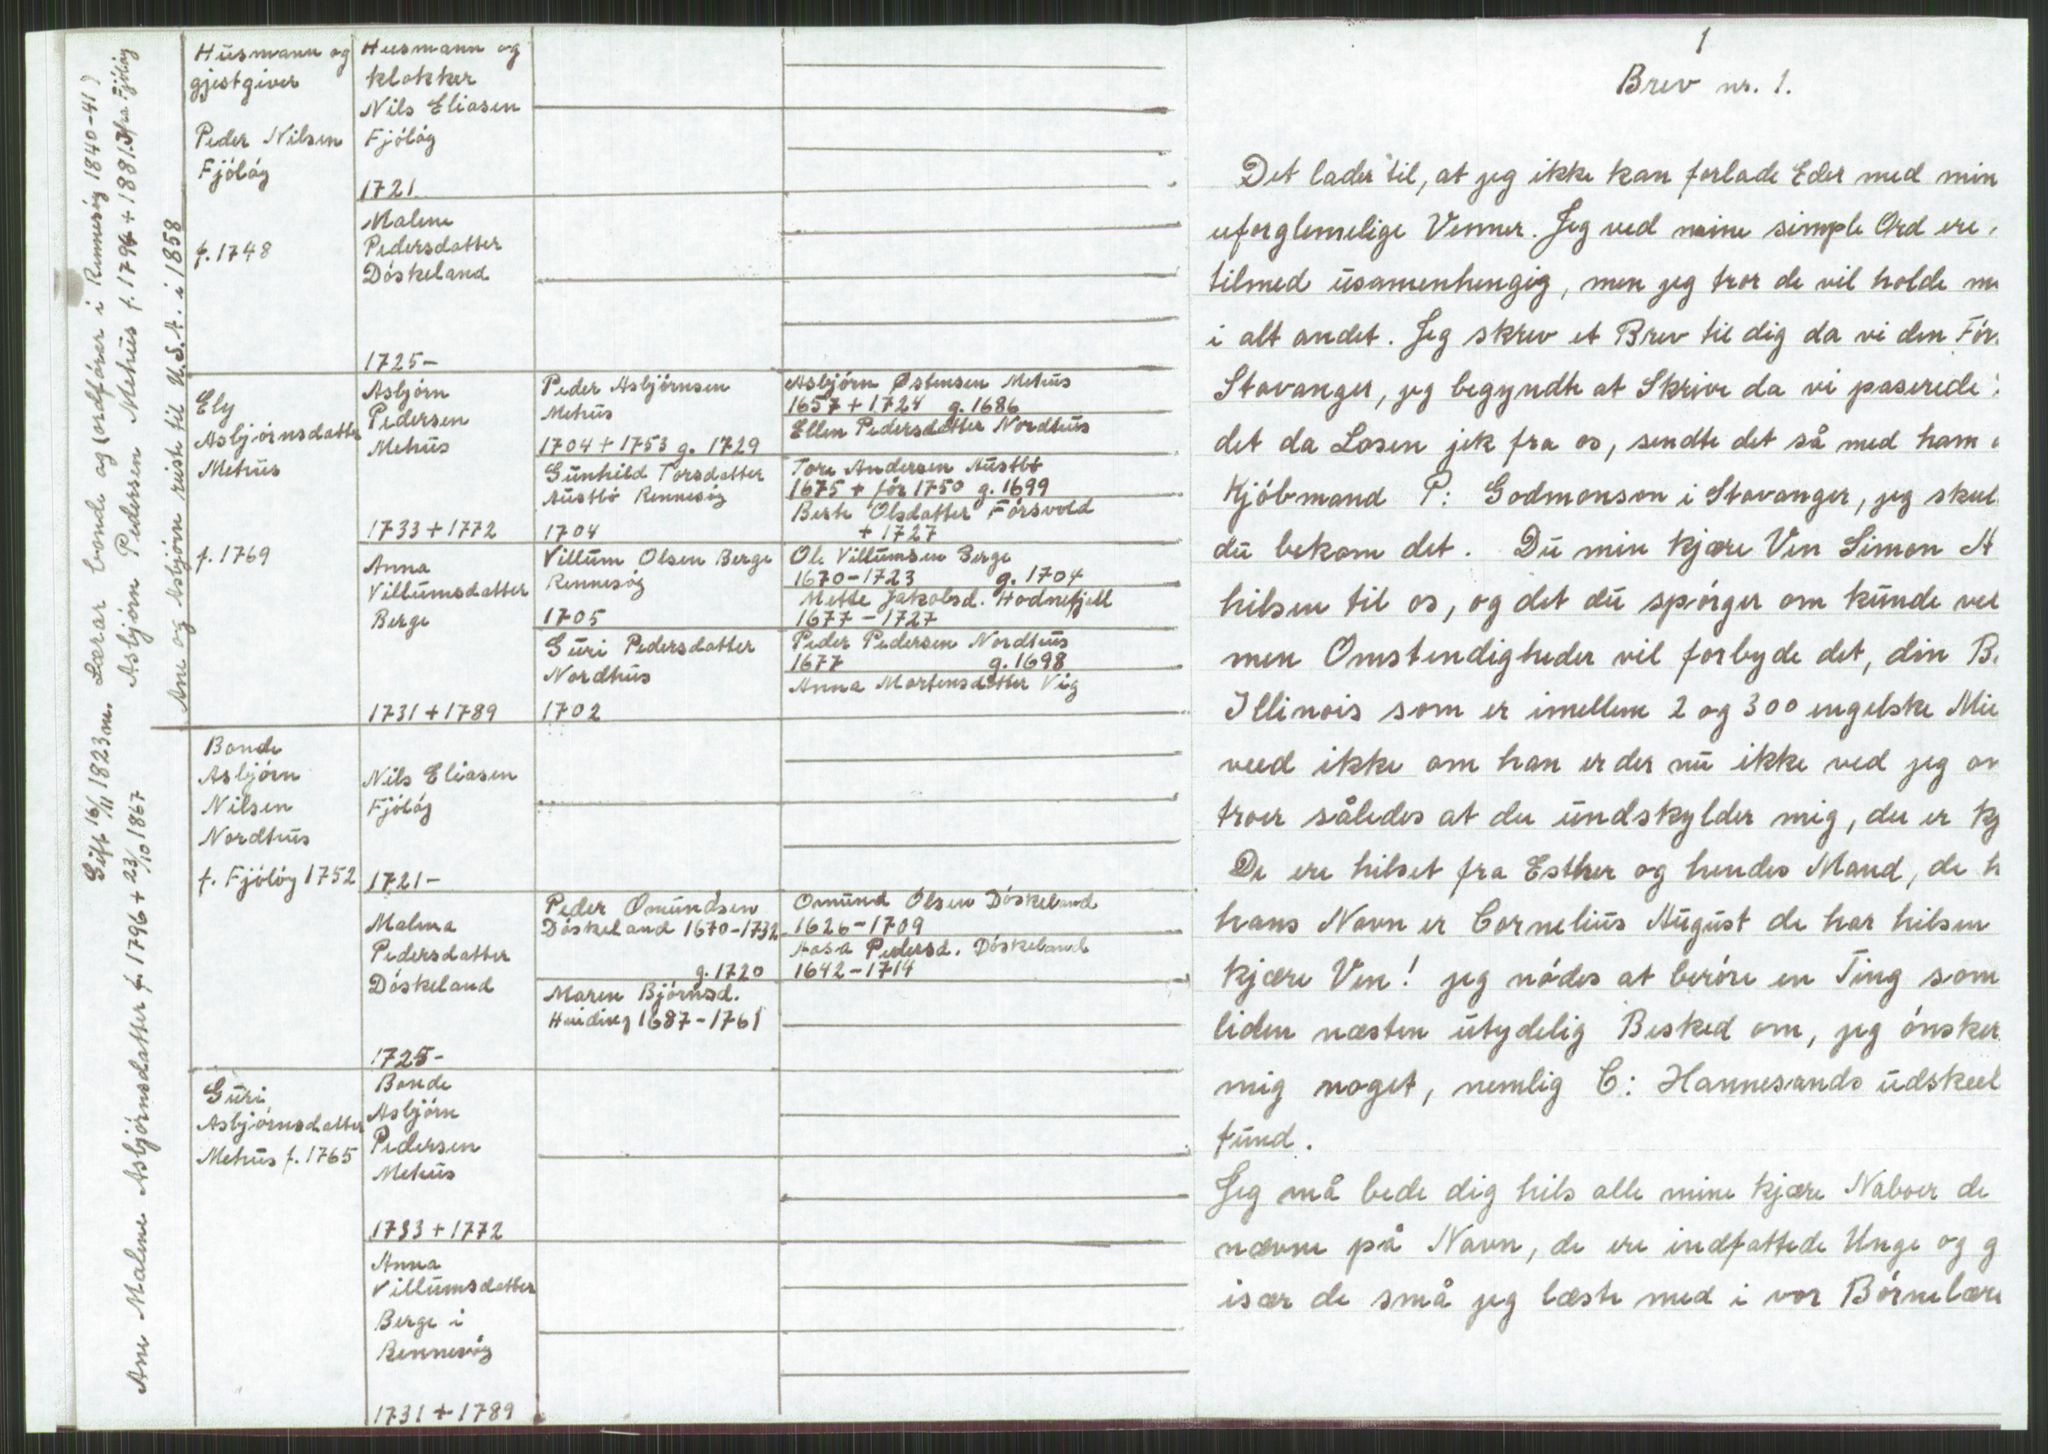 Gift 16/11 1823 m. Lærar bonde og (ordfører i Rennesøy 1840-41)
Asbjørn Pedersen Mehus f. 1796 + 1881. Ifra Fjöløy
Ane Malene Asbjørnsdatter f. 1796 + 23/10 1867
Ane og Asbjørn reiste til U.S.A. i 1858
Husmann og
gjestgiver
Peder Nilsen
Fjöløy
f. 1748
Husmann og
klokker
Nils Eliasen
Fjöløy
1721
Malene
Pedersdatter
Döskeland
1725-
Ely
Asbjørnsdatter
Mehus
f. 1769
Asbjörn
Pedersen
Mehus
1733 + 1772
Peder Asbjørnsen
Mehus
1704 + 1753 g. 1729
Asbjörn Østensen Mehus
1657 + 1724 g. 1686
Ellen Pedersdatter Nordhus
Gunhild Torsdatter
Austbö Rennesøy
1704
Tore Andersen Austbö
1675 + før 1750 g. 1699
Berte Olsdatter Førsvold
+ 1727
Anna
Villumsdatter
Berge
1731 + 1789
Villum Olsen Berge
Rennesøy
1705
Ole Villumsen Berge
1670-1723 g. 1704
Mette Jakobsd. Hodnefjell
1677-1727
Guri Pedersdatter
Nordhus
1702
Peder Pedersen Nordhus
1677 g. 1698
Anna Mortensdatter Vig
Bonde
Asbjörn
Nilsen
Nordhus
f. Fjöløy 1752
Nils Eliasen
Fjöløy
1721-
Malena
Pedersdatter
Döskeland
1725-
Peder Omundsen
Döskeland 1670-1732
g. 1720
Omund Olsen Döskeland
1626-1709
Aasa Pedersd. Döskeland
1642-1714
Maren Björnsd.
Heiding 1687-1761
Guri
Asbjørnsdatter
Mehus f. 1765
Bonde
Asbjörn
Pedersen
Mehus
1733 + 1772
Anna
Villumsdatter
Berge i
Rennesøy
1731 + 1789
1
Brev nr. 1.
Det lader til, at jeg ikke kan forlade Eder med min
uforglemelige Venner. Jeg ved mine simple Ord ere
tilmed usamenhengig, men jeg tror de vil holde
i alt andet. Jeg skrev et Brev til dig da vi den
Stavanger, jeg begyndte at Skrive da vi paserede
det da Losen jek fra os, sendte det så med ham
Kjöbmand P: Godmonson i Stavanger, jeg
du bekom det. Du min kjære Ven Simon A
hilsen til os, og det du spörger om kunde
men Omstendigheder vil forbyde det, din B.
Illinois som er imellem 2 og 300 engelske
veed ikke om han er der nu ikke ved jeg
troer således at du undskylder mig, du er
De ere hilset fra Esther og hendes Mand, de
hans Navn er Cornelius August de har hilsen
kjære Ven! jeg nödes at beröre en Ting som
liden næsten utydelig Besked om, jeg önsker
mig noget, nemlig C: Hannesands
fund.
Jeg må bede dig hils alle mine kjære Naboer de
nævne på Navn, de ere indfattede Unge og g
især de små jeg læste med i vor Börnelære